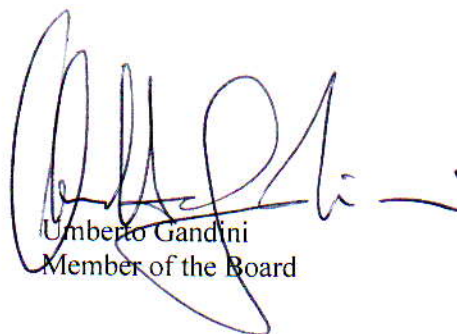 Umberto Gandini
Member of the Board